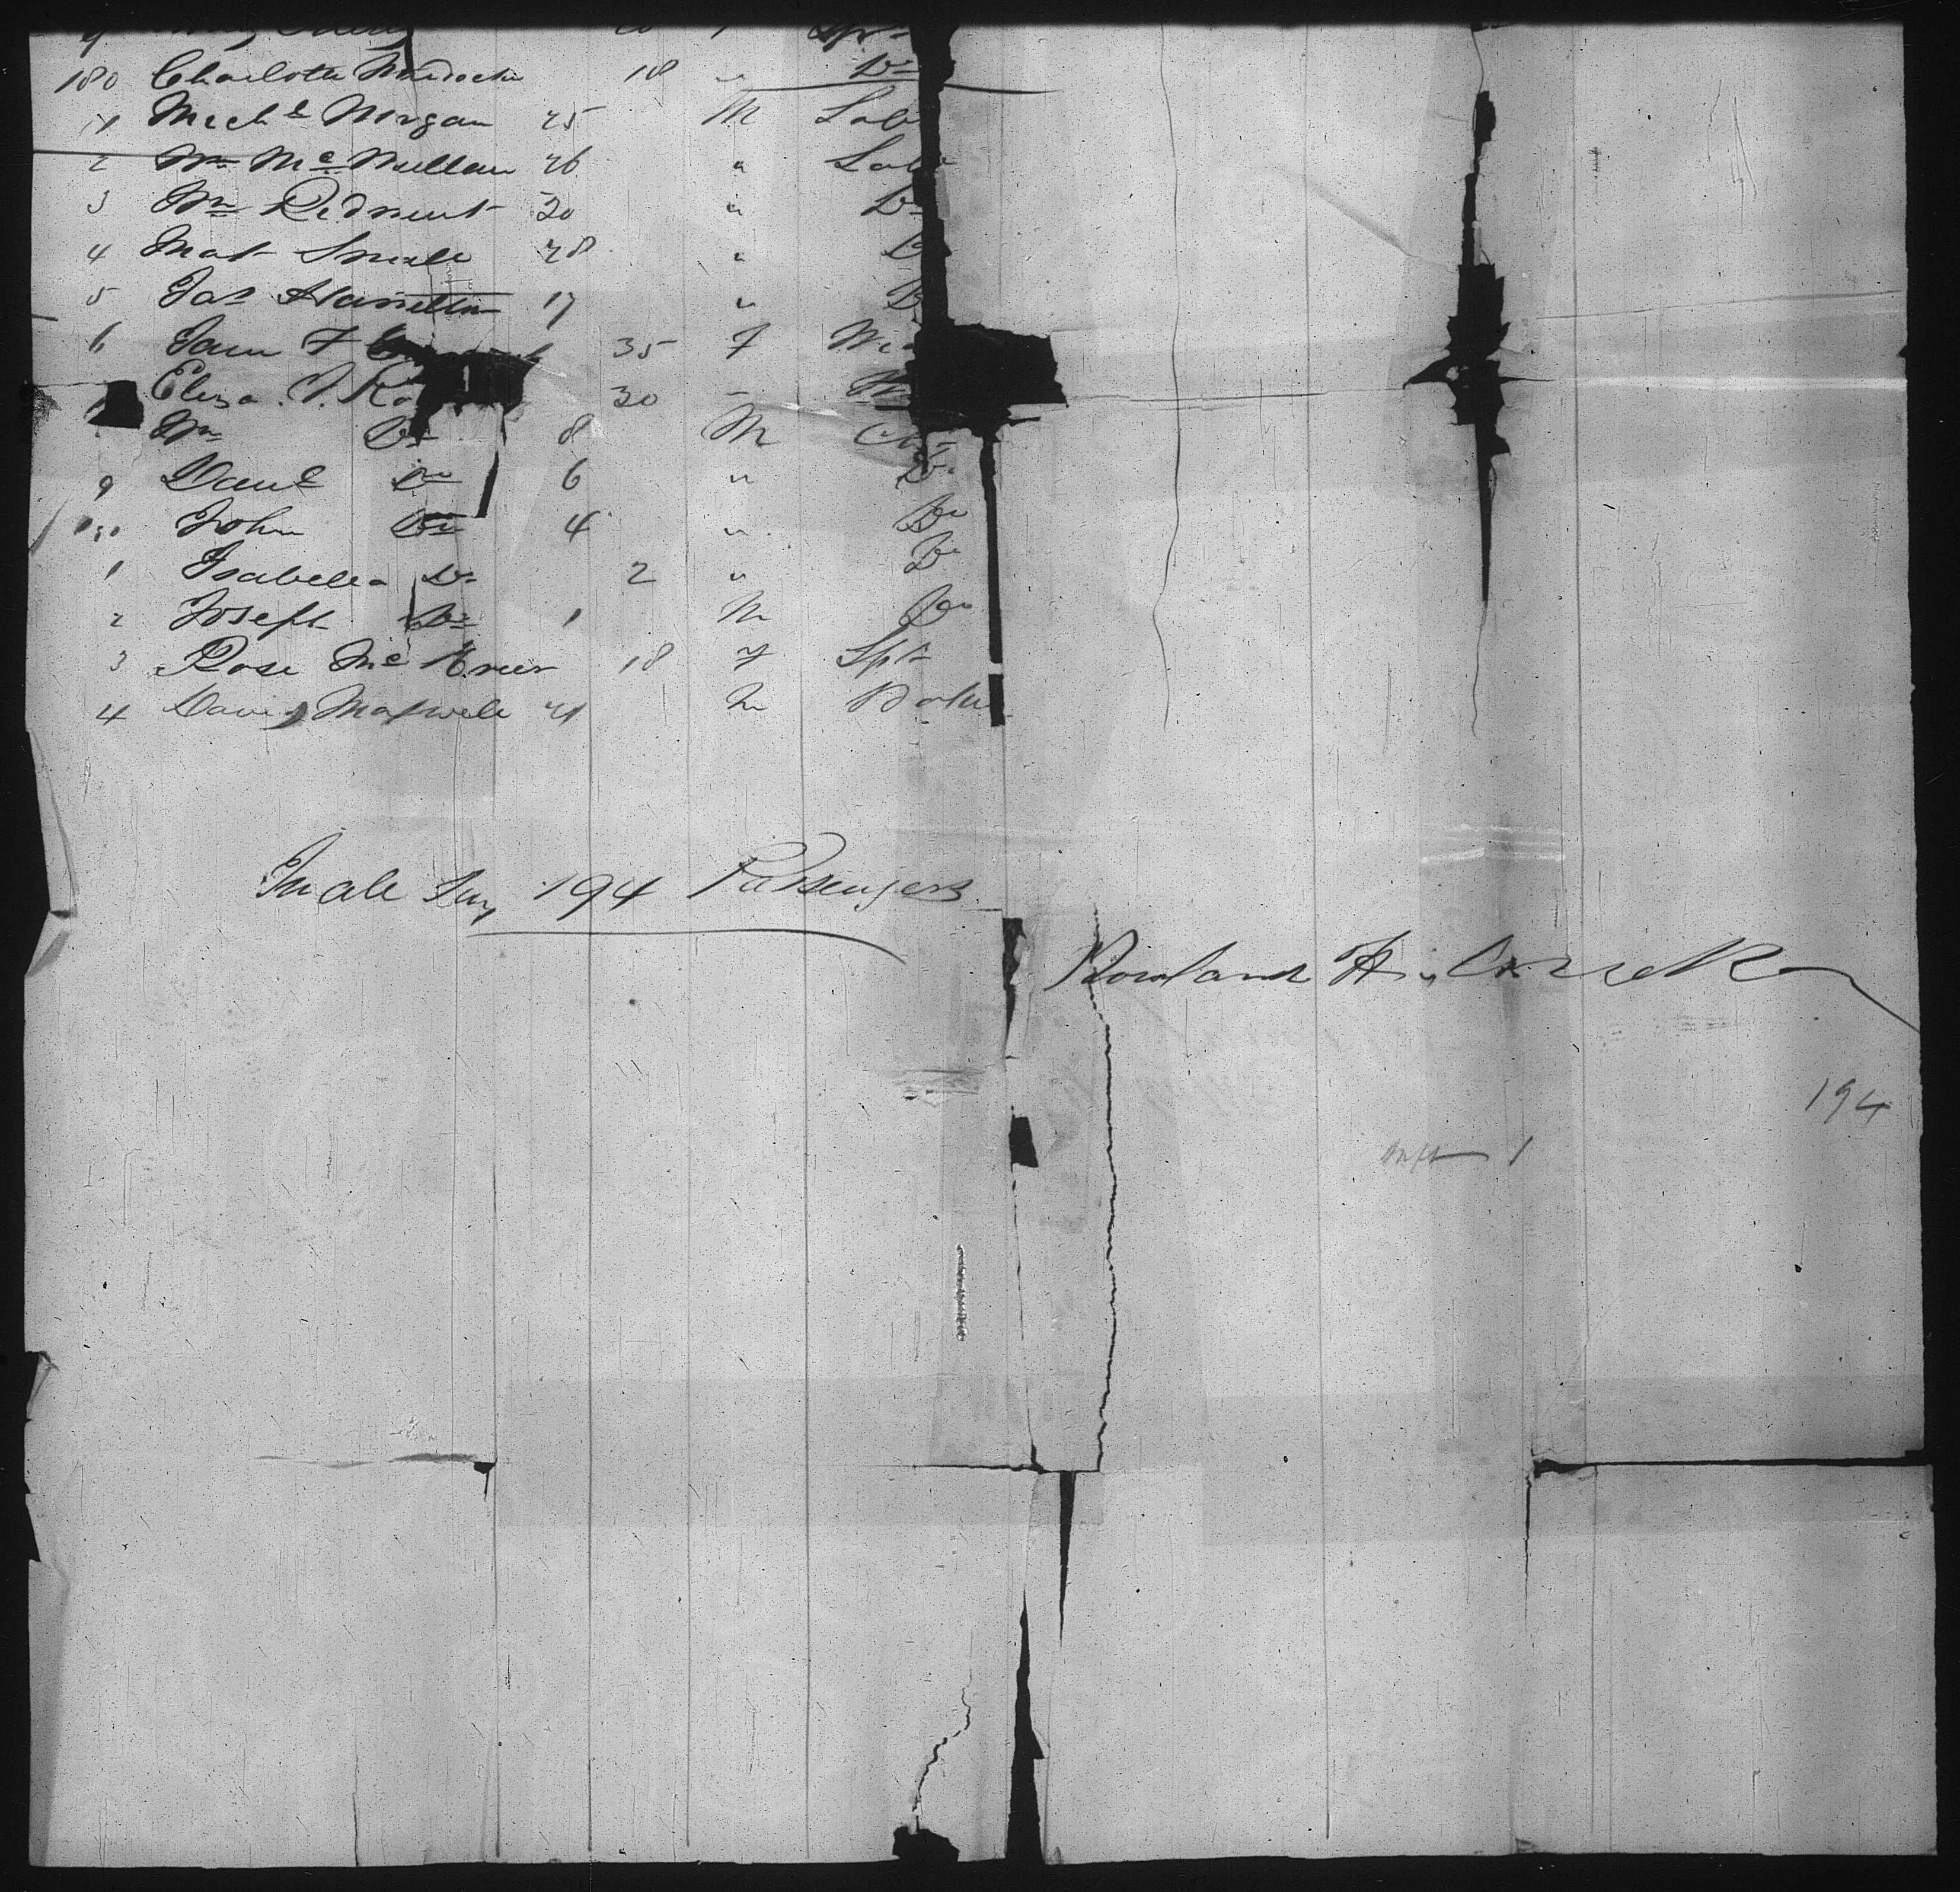 180 Charlotte Murdoch 18 " Do
1 Michl Morgan 25 M Lab
2 Wm McMullan 26 " Lab
3 Wm Redment 30 " Do
4 Mat Smale 28 " Do
5 Jas Hamilton 17 " D
6 Jane F 35 F
Eliza. J. Ro 30
Wm Do 8 M
9 Danl Do 6 " Do
John Do 4 " Do
1 Isabella Do 2 " Do
2 Joseph Do 1 M Do
3 Rose Mc 18 F Spr
4 David Maxwell 21 M
In all say 194 Passengers
Rowland H.
194
Inft 1